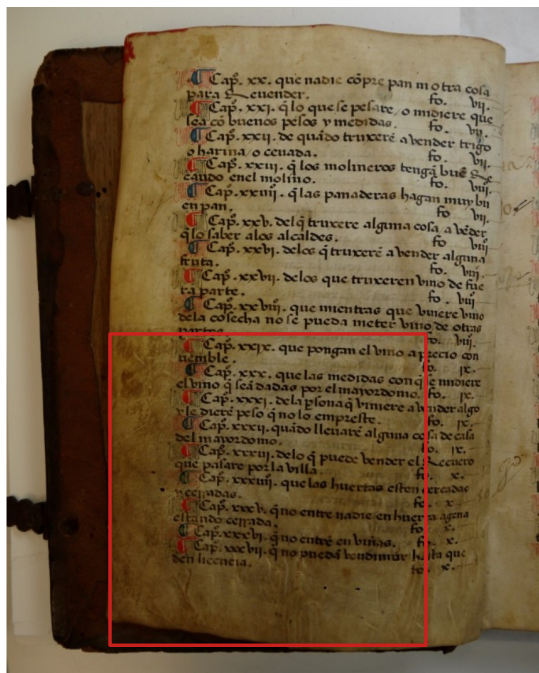 Capº. xx. que nadie cõpre pan ni otra cosa
para Reuender. fo. vii.
Capº. xxi. q̃ lo que se pesare / o midiere que
sea cõ buenos pesos y medidas. fo. vii.
Capº. xxii. de quãdo truxerẽ a vender trigo
o harina / o ceuada. fo. vii.
Capº. xxiii. q̃ los molineros tengã buẽ Re
caudo enel molino. fo. viii.
Capº. xxiiii. q̃ las panaderas hagan muy bu
en pan. fo. vii.
Capº. xxv. del q̃ truxere alguna cosa a vẽder
q̃ lo saber alos alcaldes. fo. viii.
Capº. xxvi. delos q̃ truxerẽ a vender alguna
fruta. fo. viii.
Capº. xxvii. delos que truxeren vino de fue
ra parte. fo. viii.
Capº. xxviii. que mientras que vuiere vino
dela cosecha no se pueda meter vino de otras
partes. fo. viii.
Capº. xxix. que pongan el vino a precio con
uenible. fo. ix.
Capº. xxx. que las medidas con q̃ se midiere
el vino q̃ seã dadas por el mayordomo. fo. ix.
Capº. xxxi. dela psona q̃ viniere a vender algo
y le dierẽ peso q̃ no lo empreste. fo. ix.
Capº. xxxii. quãdo lleuarẽ alguna cosa de casa
del mayordomo. fo. ix.
Capº. xxxiii. delo q̃ puede vender el Recuero
que pasare por la villa. fo. x.
Capº. xxxiiii. que las huertas esten cercadas
y cerradas. fo. x.
Capº. xxxv. q̃ no entre nadie en huerta agena
estando cerrada. fo. x.
Capº. xxxvi. q̃ no entrẽ en viñas. fo. x.
Capº. xxxvii. q̃ no puedã vendimiar hasta que
den licencia. fo. x.